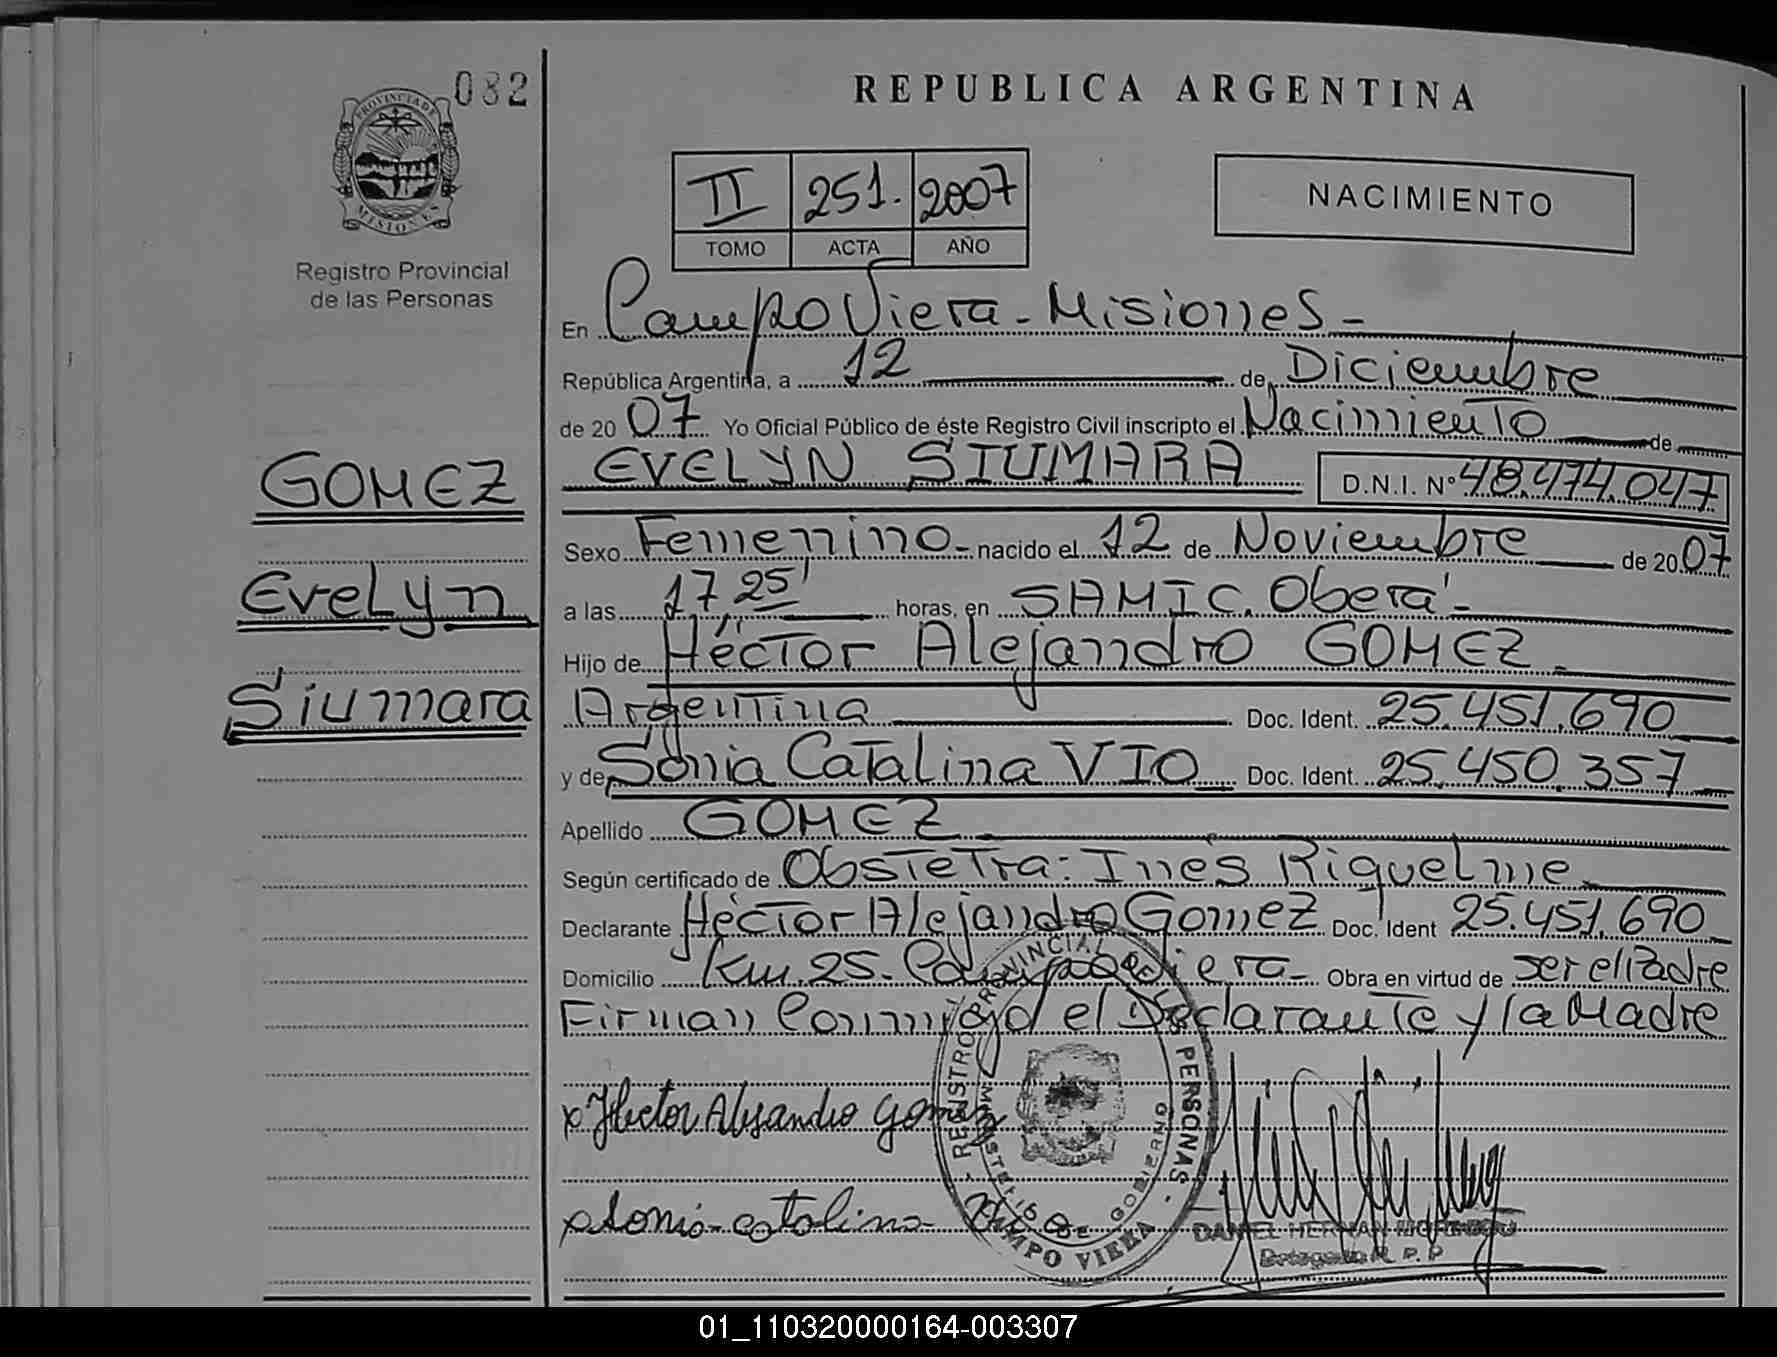 082
PROVINCIA DE
MISIONES
Registro Provincial
de las Personas
GOMEZ
Evelyn
Siumara
REPUBLICA ARGENTINA
II 251. 2007
TOMO ACTA AÑO
NACIMIENTO
En Campo Viera - Misiones -
República Argentina, a 12 de Diciembre
de 2007 Yo Oficial Público de éste Registro Civil inscripto el Nacimiento de
EVELYN SIUMARA D.N.I. N° 48.474.047
Sexo Femenino - nacido el 12 de Noviembre de 2007
a las 17,25' horas, en SAMIC. Oberá -
Hijo de Héctor Alejandro GOMEZ -
Argentina Doc. Ident. 25.451.690
y de Sonia Catalina VIO Doc. Ident. 25.450.357
Apellido GOMEZ
Según certificado de Obstetra: Inés Riquelme
Declarante Héctor Alejandro Gomez Doc. Ident 25.451.690
Domicilio Km. 25 - Campo Viera - Obra en virtud de ser el Padre
Firman Conmigo el Declarante y la Madre
x Hector Alejandro Gomez
x Sonia catalina Vio
REGISTRO PROVINCIAL DE LAS PERSONAS -
MINISTERIO DE GOBIERNO
CAMPO VIERA
DANIEL HERNAN
Delegado R. P. P
01_110320000164-003307